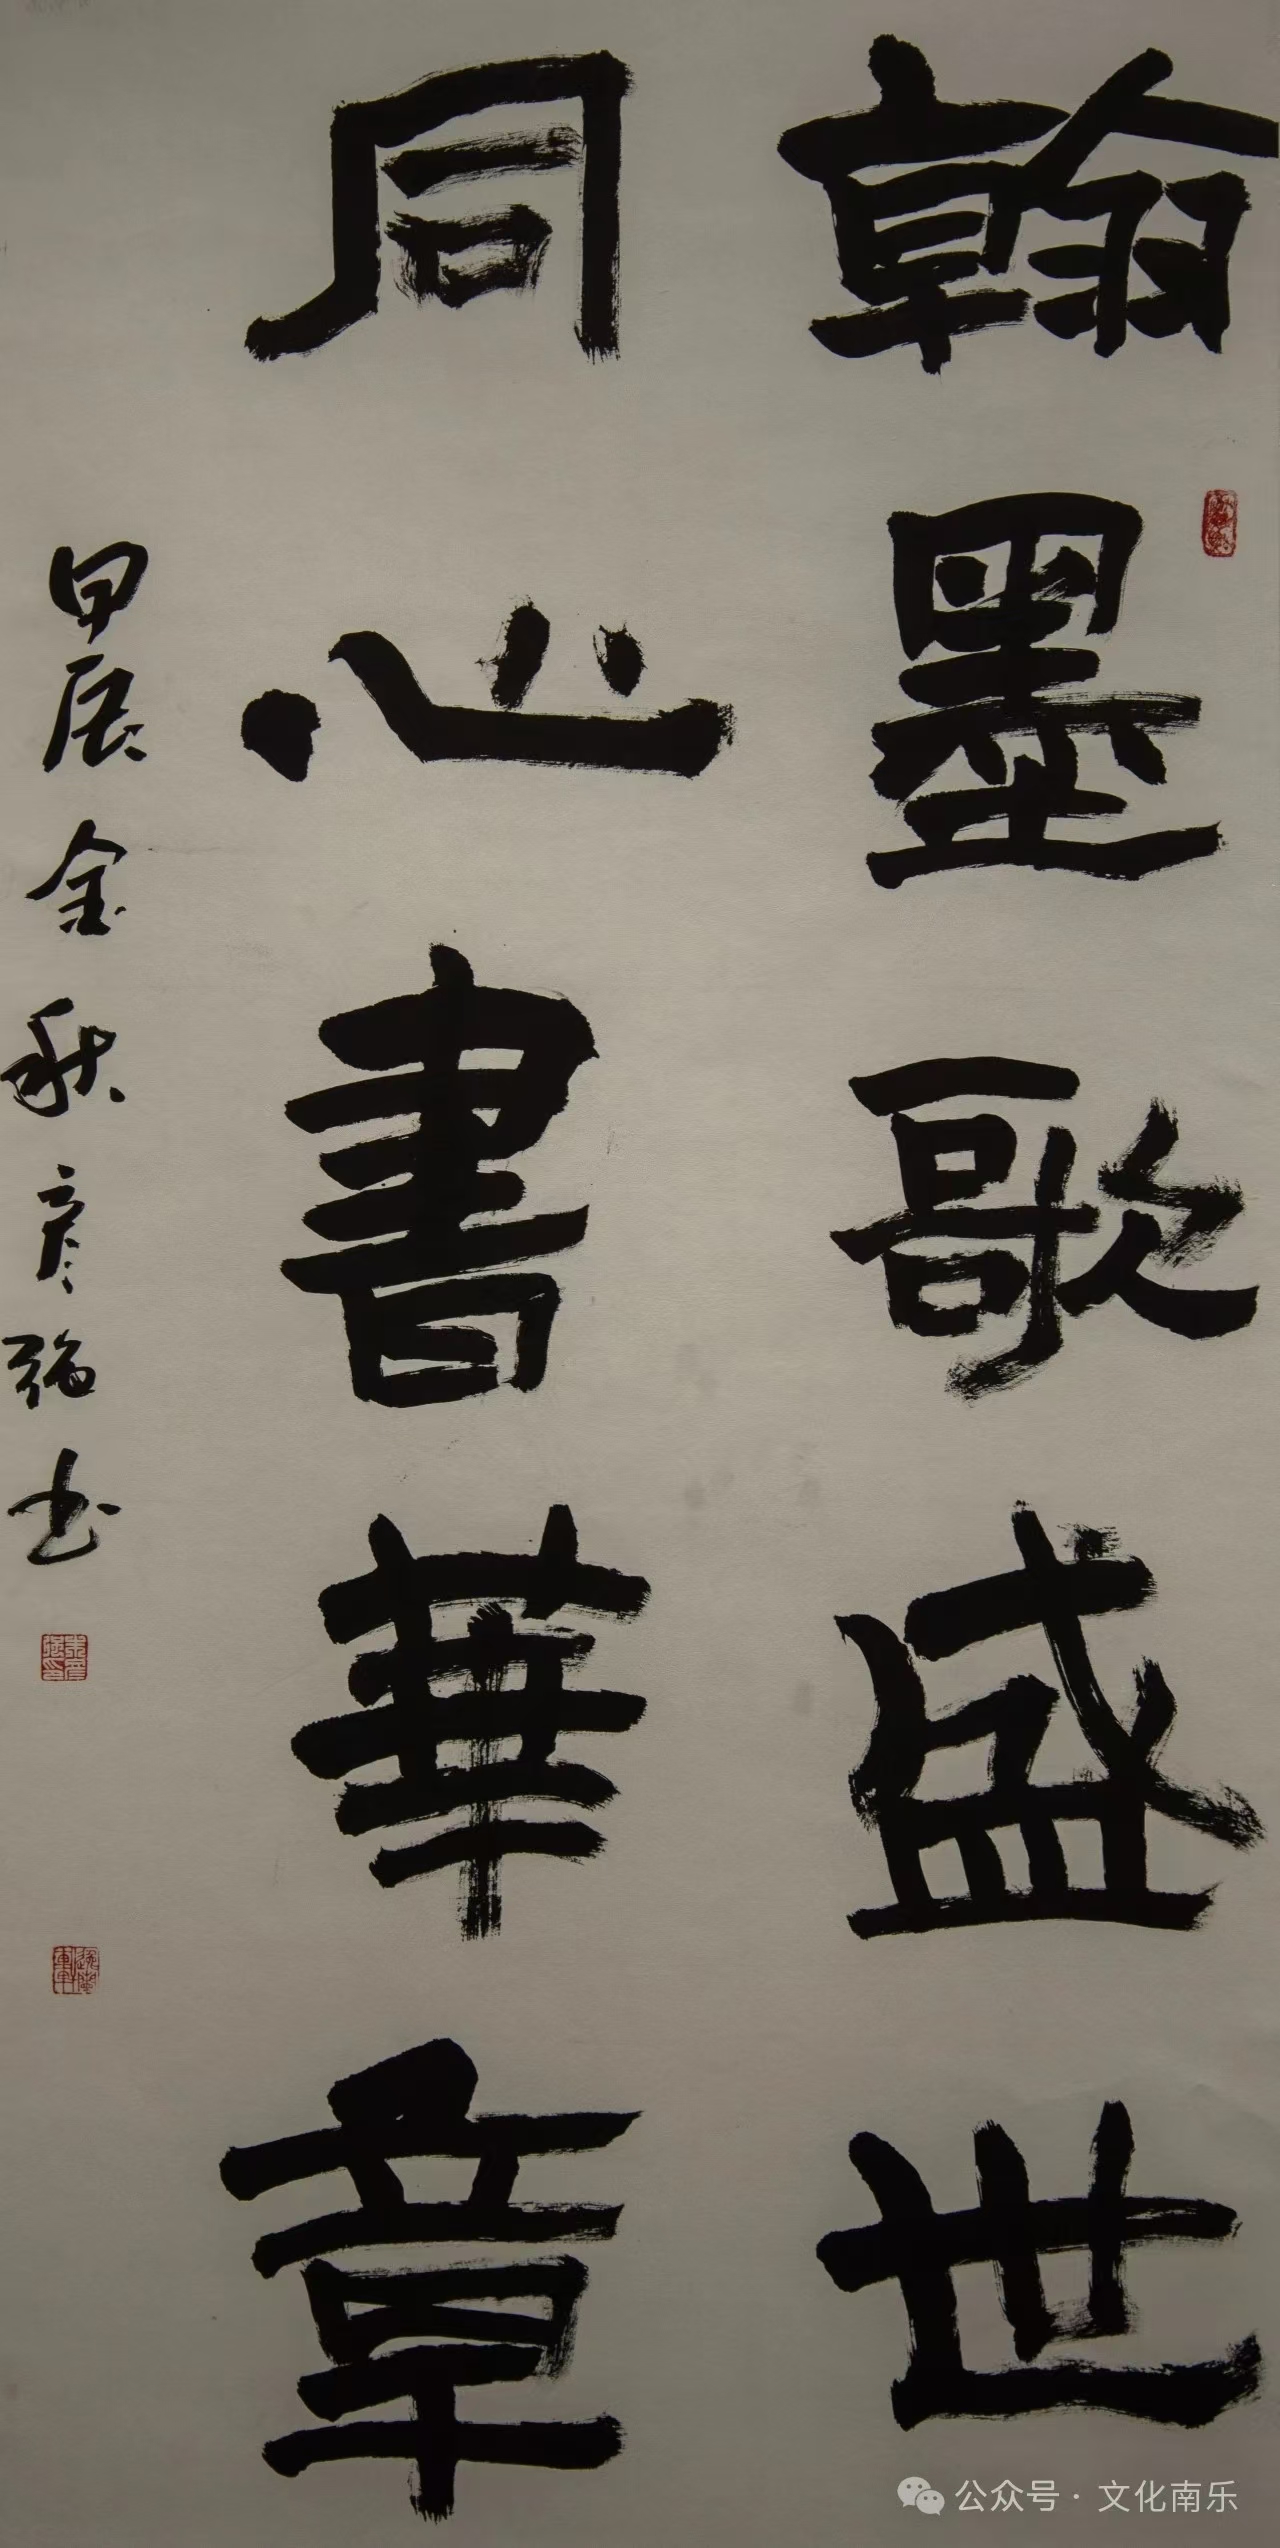 翰墨歌盛世
同心書華章
甲辰金秋彦强书
公众号·文化南乐